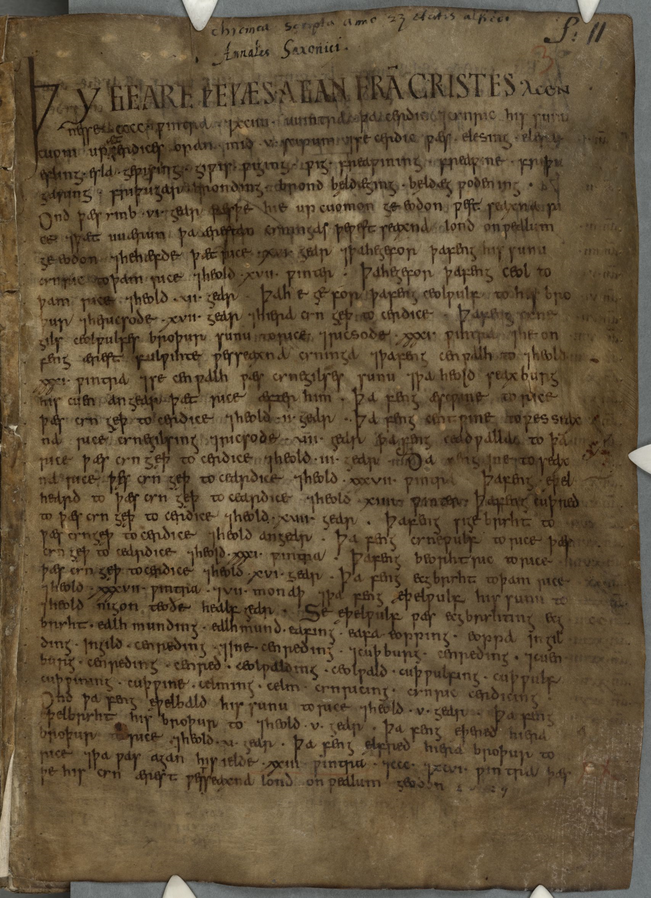 chronica scripta anno 23 etatis alfredi
Annales Saxonici.
S: 11
ÞY GEARE ÞE ǷÆS AGAN FRÃ CRISTES acen
nesse .cccc. ƿintra ⁊ xciiii uuintra þa cerdic ⁊ cynric his sunu
cuom up æt cerdices oran mid .v. scipum ⁊ se cerdic ƿæs elesing. elesa
esling. esla geƿising. giƿis ƿiging. ƿig freaƿining. freaƿine friþu
garing. friþugar bronding. brond beldæging. beldæg ƿodening.
Ond þæs ymb .vi. gear þæs þe hie up cuomon ge eodon ƿest seaxna ri
ce ⁊ þæt uuærun þa ærestan cyningas þe ƿest seaxna lond on ƿealum
ge eodon ⁊ he hæfde þæt rice .xvi. gear ⁊ þa he gefor þa feng his sunu
cynric to þam rice ⁊ heold .xvii. ƿinter. Þa he gefor þa feng ceol to
þam rice ⁊ heold .vi. gear. Þa he ge for þa feng ceolƿulf to his bro
þur ⁊ he ricsode .xvii. gear ⁊ hiera cyn geþ to cerdice. Þa feng cyne
gils ceolƿulfes broþur sunu to rice ⁊ ricsode .xxxi. ƿintra ⁊ he on
feng ærest fulƿihte ƿesseaxna cyninga ⁊ þa feng cenƿalh to ⁊ heold
.xxxi. ƿintra ⁊ se cenƿalh ƿæs cynegilses sunu ⁊ þa heold seaxburg
his cuen an gear þæt rice æfter him. Þa feng æscƿine to rice
þæs cyn geþ to cerdice ⁊ heold .ii. gear. Þa feng centƿine to ƿesseax
na rice cynegilsing ⁊ ricsode .viiii. gear Þa feng ceadƿalla to þam
rice þæs cyn geþ to cerdice ⁊ heold .iii. gear Þa feng ine to seax
na rice þæs cyn geþ to cerdice ⁊ heold .xxxvii. ƿintra Þa feng æþel
heard to þæs cyn geþ to cerdice ⁊ heold .xiiii. ƿinter Þa feng cuþred
to þæs cyn geþ to cerdice ⁊ heold .xvii. gear. Þa feng sigebryht to
þæs cyn geþ to cerdice ⁊ heold an gear. Þa feng cyneƿulf to rice þæs
cyn geþ to cerdice ⁊ heold .xxxi. ƿintra. Þa feng beorhtric to rice
þæs cyn geþ to cerdice ⁊ heold .xvi. gear. Þa feng ecgbryht to þam rice
⁊ heold .xxxvii. ƿintra. ⁊ .vii. monaþ ⁊ þa feng eþelƿulf his sunu to
⁊ heold nigon teoðe healf gear. Se eþelƿulf ƿæs ecgbryhting ecg
bryht ealhmunding. ealhmund eafing. eafa eopping. eoppa ingil
ding. ingild cenreding. ⁊ ine cenreding. ⁊ cuþburg cenreding. ⁊ cuen
burg cenreding. cenred ceolƿalding. ceolƿald cuþƿulfing. cuþƿulf
cuþƿining. cuþƿine celming. celm cynricing. cynric cerdicing
Ond þa feng eþelbald his sunu to rice ⁊ heold .v. gear. Þa feng
æþelbryht his broþur to ⁊ heold .v. gear. Þa feng eþered hiera
broþur to rice ⁊ heold .v. gear. Þa feng elfred hiera broþur to
rice ⁊ þa ƿæs agan his ielde .xxiii. ƿintra ⁊ .ccc. ⁊ xcvi. ƿintra þæs
þe his cyn ærest ƿesseaxna lond on ƿealum geodon